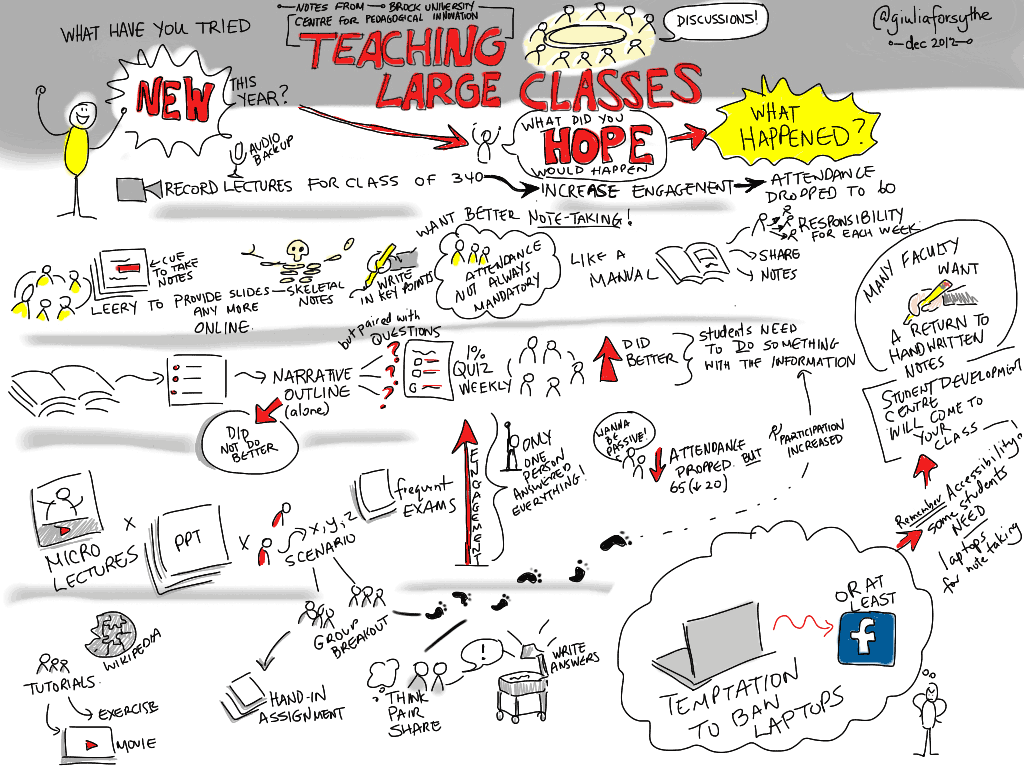 NOTES FROM BROCK UNIVERSITY
CENTRE FOR PEDAGOGICAL INNOVATION
TEACHING
LARGE CLASSES
DISCUSSIONS!
@giuliaforsythe
dec 2012
WHAT HAVE YOU TRIED
NEW
THIS
YEAR?
WHAT DID YOU
HOPE
WOULD HAPPEN
WHAT
HAPPENED?
AUDIO
BACKUP
RECORD LECTURES FOR CLASS OF 340
INCREASE ENGAGEMENT
ATTENDANCE
DROPPED TO 60
WANT BETTER NOTE-TAKING!
CUE
TO TAKE
NOTES
LEERY TO PROVIDE SLIDES
ANY MORE
ONLINE.
SKELETAL
NOTES
WRITE
IN KEY POINTS
ATTENDANCE
NOT ALWAYS
MANDATORY
LIKE A
MANUAL
RESPONSIBILITY
FOR EACH WEEK
SHARE
NOTES
MANY FACULTY
WANT
A RETURN TO
HANDWRITTEN
NOTES
NARRATIVE
OUTLINE
(alone)
DID
NOT DO
BETTER
but paired with
QUESTIONS
?
?
?
?
G
1%
QUIZ
WEEKLY
DID
BETTER
students NEED
TO DO SOMETHING
WITH THE INFORMATION
STUDENT DEVELOPMENT
CENTRE
WILL COME TO
YOUR
CLASS
MICRO
LECTURES
x
PPT
x
x, y, z
SCENARIO
frequent
EXAMS
ENGAGEMENT
ONLY
ONE
PERSON
ANSWERED
EVERYTHING!
WANNA
BE
PASSIVE!
ATTENDANCE
DROPPED. BUT
65 (↓20)
PARTICIPATION
INCREASED
Remember Accessibility!
some students
NEED
laptops
for note taking
WIKIPEDIA
TUTORIALS.
EXERCISE
MOVIE
GROUP
BREAKOUT
HAND-IN
ASSIGNMENT
THINK
PAIR
SHARE
!
WRITE
ANSWERS
OR AT
LEAST
f
TEMPTATION
TO BAN
LAPTOPS